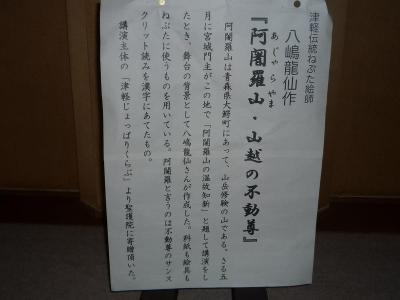 津軽伝統ねぷた絵師
八嶋龍仙作
あじゃらやま
『阿闍羅山・山越の不動尊』
阿闍羅山は青森県大鰐町にあって、山岳修験の山である。さる五
月に宮城門主がこの地で「阿闍羅山の温故知新」と題して講演をし
たとき、舞台の背景として八嶋龍仙さんが作成した。料紙も絵具も
ねぷたに使うものを用いている。阿闍羅と言うのは不動尊のサンス
クリット読みを漢字にあてたもの。
講演主体の「津軽じょっぱりくらぶ」より聖護院に寄贈頂いた。